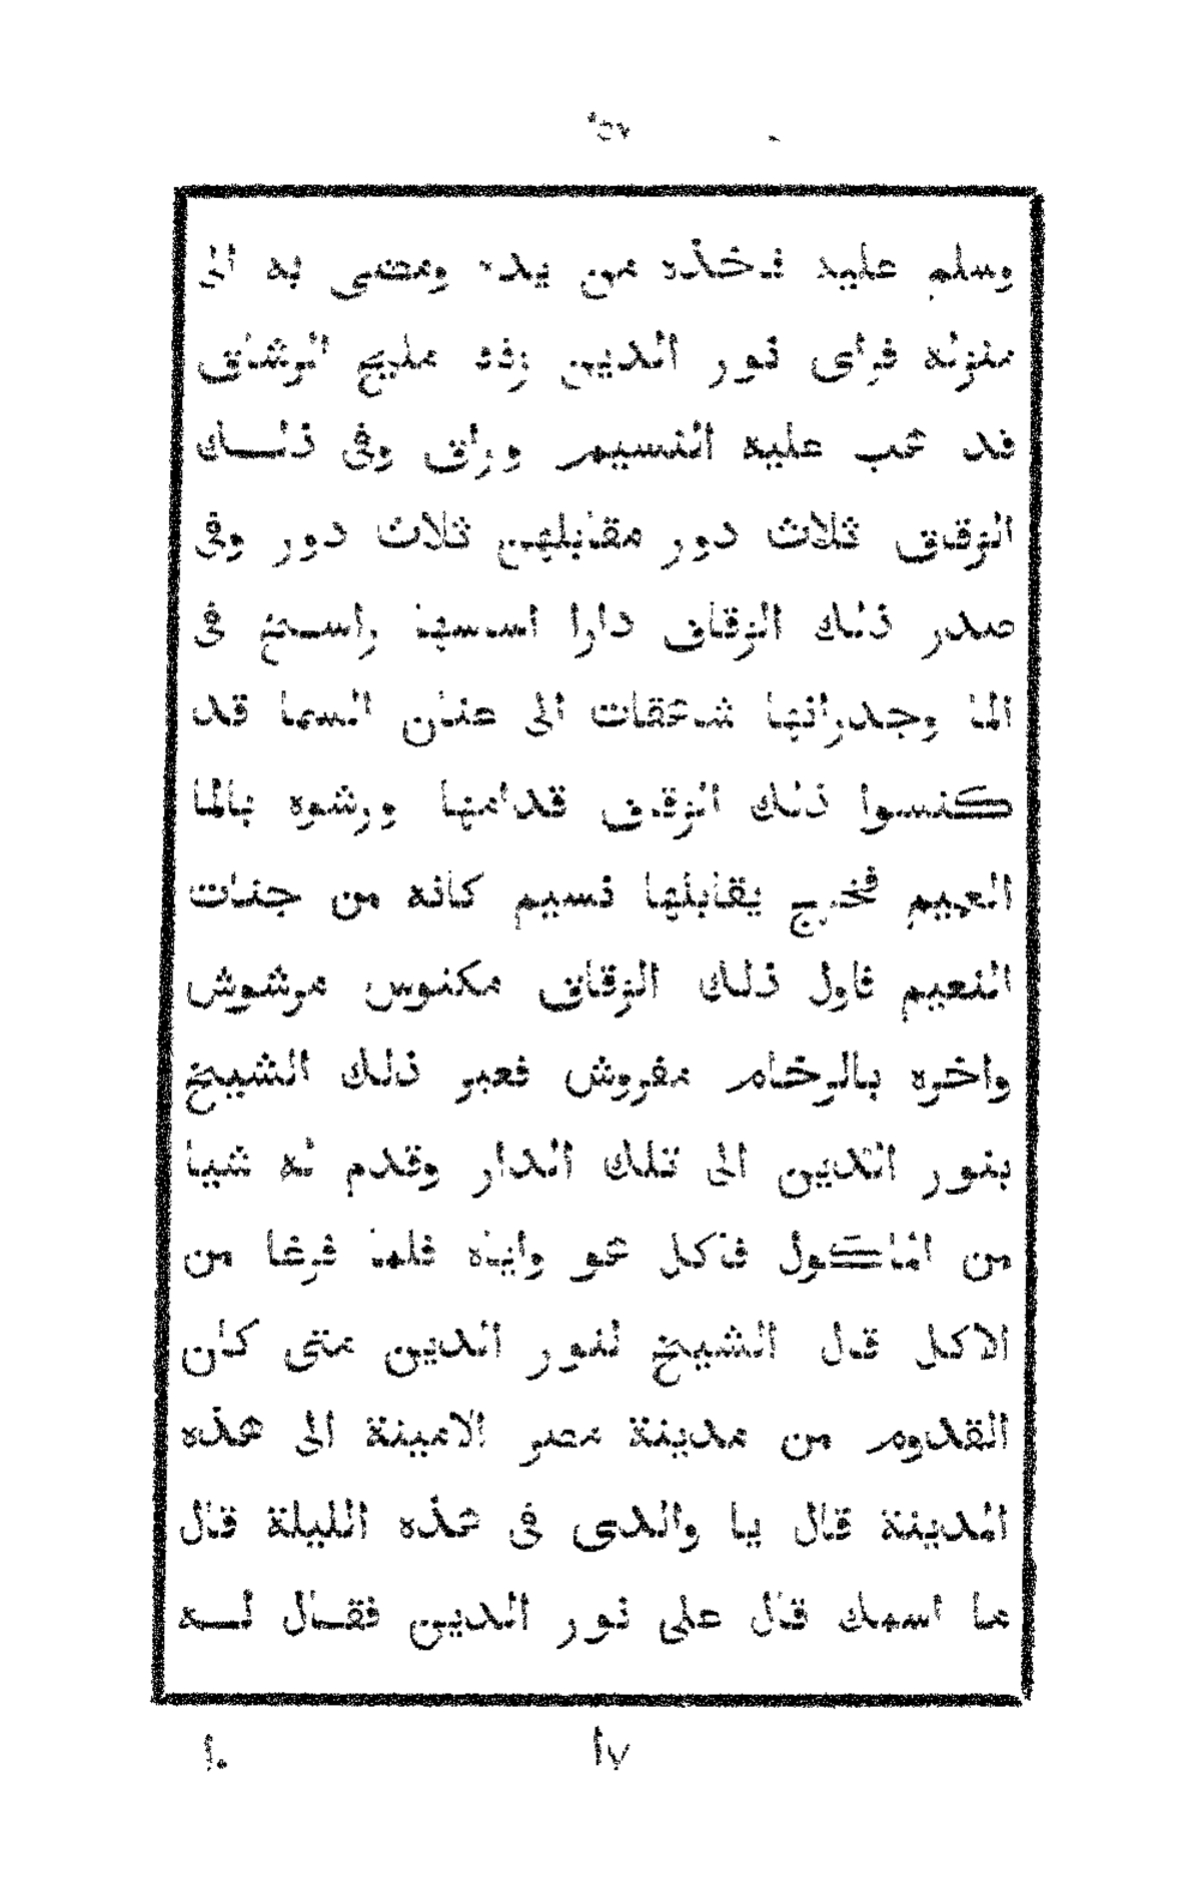 ٢٥٧
وسلم عليه فاخذه من يده ومضى به الى
منزله فراى نور الدين زقاق مليح الرشاق
قد هب عليه النسيم وراق وفى ذلـك
الزقاق ثلاث دور مقابلهن ثلاث دور وفى
صدر ذلك الزقاق دارا اسسها راسخ فى
الما وجدرانها شاهقات الى عنان السما قد
كنسوا ذلك الزقاق قدامها ورشوه بالما
العميم فخرج يقابلها نسيم كانه من جنات
النعيم فاول ذلك الزقاق مكنوس مرشوش
واخره بالرخام مفروش فعبر ذلك الشيخ
بنور الدين الى تلك الدار وقدم له شيا
من الماكول فاكل هو واياه فلما فرغا من
الاكل قال الشيخ لنور الدين متى كان
القدوم من مدينة مصر الامينة الى هذه
المدينة قال يا والدى فى هذه الليلة قال
ما اسمك قال على نور الدين فقـال لـه
١٧